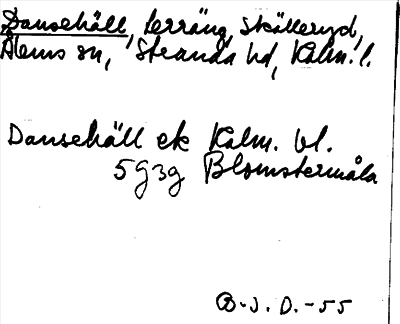 Dansehäll, terräng, Skälleryd,
Ålems sn, Stranda hd, Kalm. l.
Dansehäll ek Kalm. bl.
5G3g Blomstermåla
B.J.D.-55